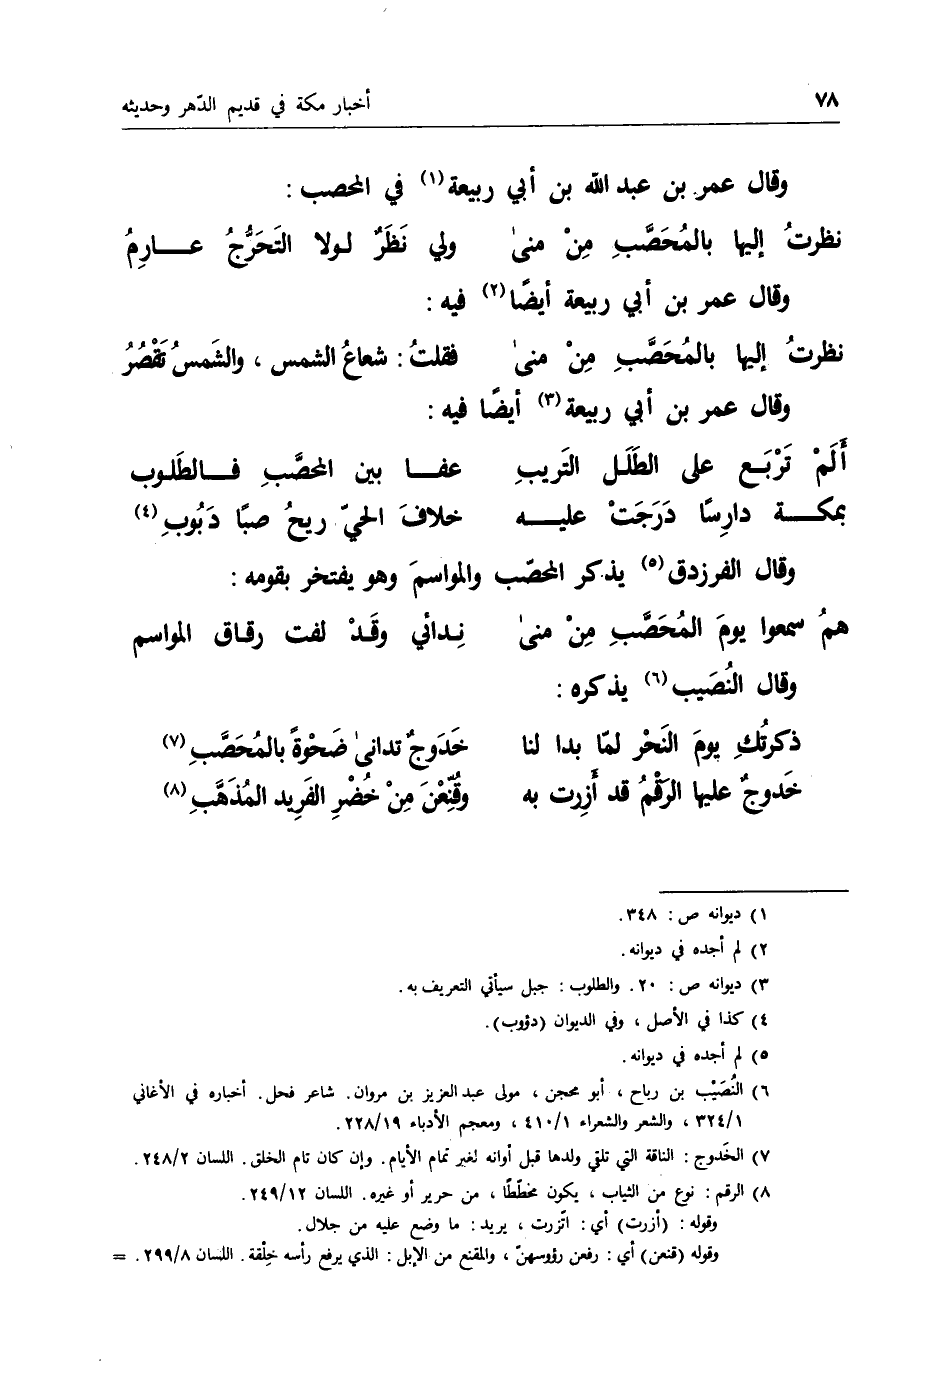 ٧٨ أخبار مكة في قديم الدّهر وحديثه
وقال عمر بن عبد الله بن أبي ربيعة(١) في المحصب :
نظرتُ إليها بالمُحَصَّبِ مِنْ منىٰ ولي نَظَرٌ لولا التَحَرُّجُ عـارِمُ
وقال عمر بن أبي ربيعة أيضًا(٢) فيه :
نظرتُ إليها بالمُحَصَّبِ مِنْ منىٰ فقلتُ : شعاعُ الشمس ، والشَمسُ تَقْصُرُ
وقال عمر بن أبي ربيعة(٣) أيضًا فيه :
أَلَمْ تَرْبَع على الطَلَل التَريبِ عفـا بين المحصَّبِ فـالطَلوب
بمكـة دارِسًا دَرَجَتْ عليـه خلافَ الحيّ ريحُ صبًا دَبُوبِ(٤)
وقال الفرزدق(٥) يذكر المحصّب والمواسمَ وهو يفتخر بقومه :
همُ سمعوا يومَ المُحَصَّبِ مِنْ منىٰ نِدائي وقَدْ لفت رقاق المواسم
وقال النُصَيب(٦) يذكره :
ذكرتُكِ يومَ النَحْر لمّا بدا لنا خَدَوجٌ تدانىٰ ضَحْوةً بالمُحَصَّبِ(٧)
خَدوجٌ عليها الرَقْمُ قد أَزِرت به وقُنِّعْنَ مِنْ خُضْرِ الفَرِيد المُذهَّبِ(٨)
١) ديوانه ص : ٣٤٨.
٢) لم أجده في ديوانه.
٣) ديوانه ص : ٢٠. والطلوب : جبل سيأتي التعريف به.
٤) كذا في الأصل ، وفي الديوان (دؤوب).
٥) لم أجده في ديوانه.
٦) النُّصَيْب بن رباح ، أبو محجن ، مولى عبد العزيز بن مروان. شاعر فحل. أخباره في الأغاني
٣٢٤/١ ، والشعر والشعراء ٤١٠/١ ، ومعجم الأدباء ٢٢٨/١٩.
٧) الخَدوج : الناقة التي تلقي ولدها قبل أوانه لغير تمام الأيام. وإن كان تام الخلق. اللسان ٢٤٨/٢.
٨) الرقم : نوع من الثياب ، يكون مخطّطًا ، من حرير أو غيره. اللسان ٢٤٩/١٢.
وقوله : (أزرت) أي : اتّزرت ، يريد : ما وضع عليه من جلال.
وقوله (قنعن) أي : رفعن رؤوسهنّ ، والمقنع من الإبل : الذي يرفع رأسه خِلْقة. اللسان ٢٩٩/٨. =